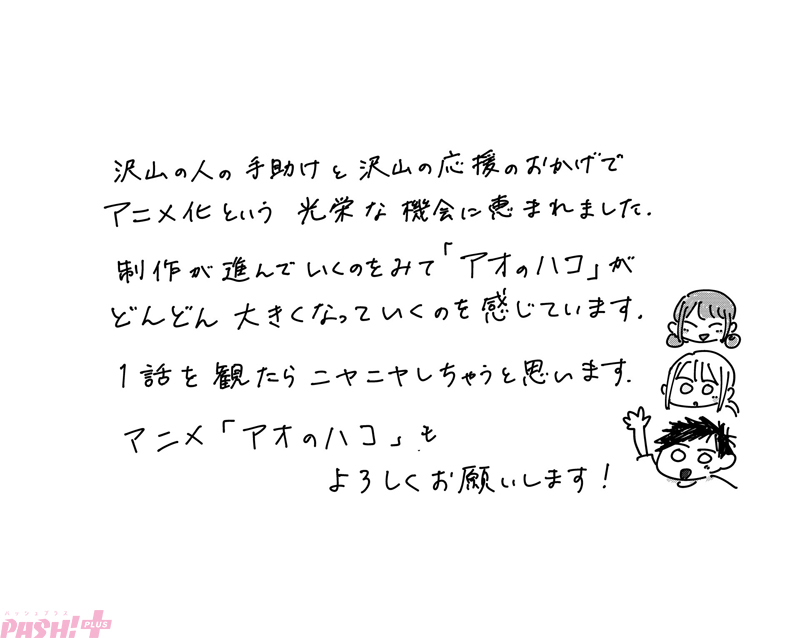 沢山の人の手助けと沢山の応援のおかげで
アニメ化という 光栄な機会に恵まれました.
制作が進んでいくのをみて「アオのハコ」が
どんどん大きくなっていくのを感じています.
1話を観たらニヤニヤしちゃうと思います.
アニメ「アオのハコ」も
よろしくお願いします!
パッシュプラス
PASH! PLUS